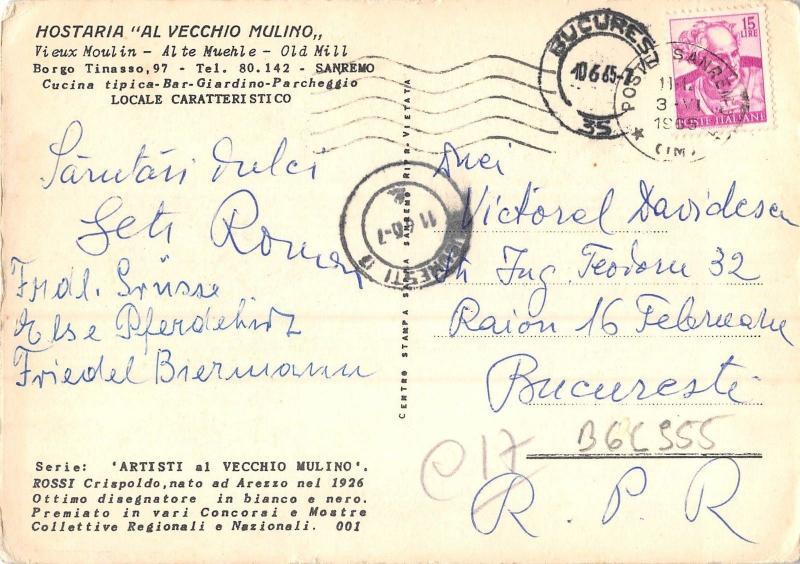 HOSTARIA "AL VECCHIO MULINO„
Vieux Moulin - Alte Muehle - Old Mill
Borgo Tinasso, 97 - Tel. 80.142 - SANREMO
Cucina tipica-Bar-Giardino-Parcheggio
LOCALE CARATTERISTICO
Sărutări dulci
Geti Roman
Frdl. Grüsse
Else Pferdehirt
Friedel Biermann
Serie: 'ARTISTI al VECCHIO MULINO'.
ROSSI Crispoldo, nato ad Arezzo nel 1926
Ottimo disegnatore in bianco e nero.
Premiato in vari Concorsi e Mostre
Collettive Regionali e Nazionali. 001
CENTRO STAMPA SANREMO RIPR. VIETATA
BUCURESTI
10 6 65-7
35
15
LIRE
POSTE ITALIANE
POSTE SANREMO
3-VI
1965
(IM)
BUCURESTI
11
Dnei
Victorel Davidescu
Str Ing. Teodoru 32
Raion 16 Februarie
Bucuresti
R.P.R
B6C955
€17